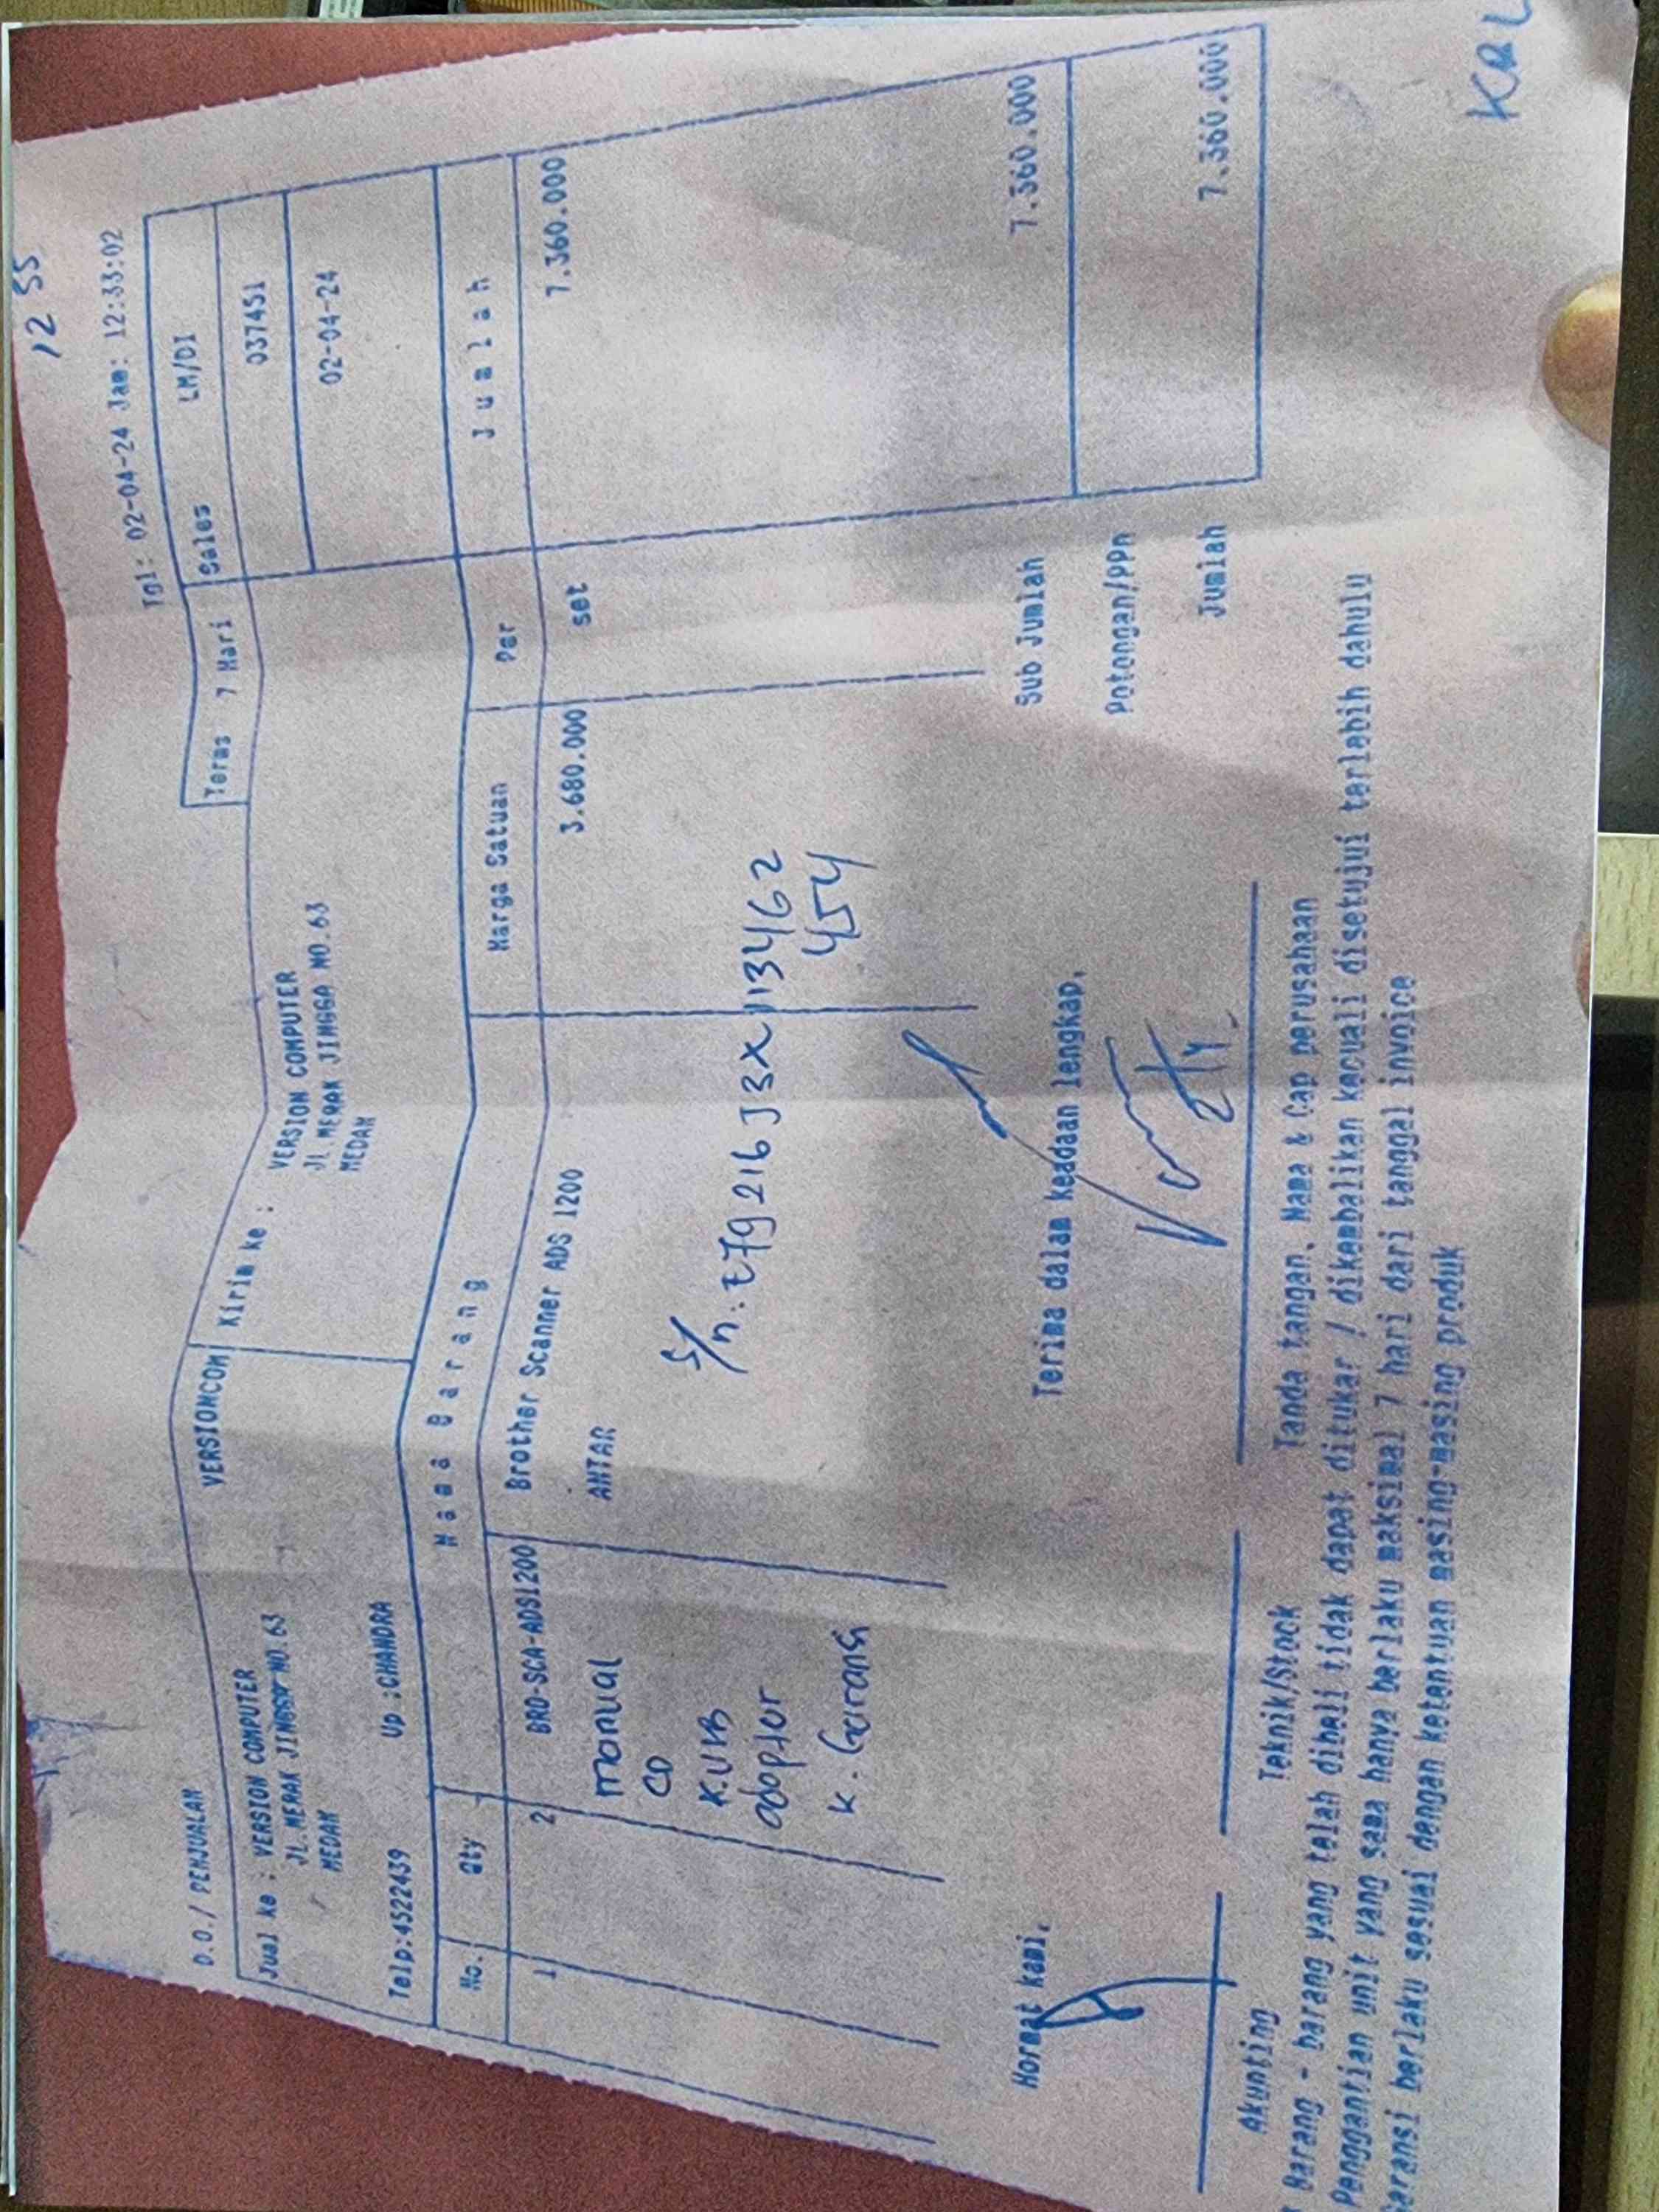 12 55
Tgl: 02-04-24 Jam: 12:33:02
D.O./ PENJUALAN
VERSIONCOM
Terms 7 Hari
Sales LM/DI
Jual ke : VERSION COMPUTER
JL.MERAK JINGGA NO.63
MEDAN
Telp:4522439 Up :CHANDRA
Kirim ke :
VERSION COMPUTER
JL.MERAK JINGGA NO.63
MEDAN
037451
02-04-24
No. Qty Nama Barang Harga Satuan Per Jumlah
1 2 BRO-SCA-ADS1200 Brother Scanner ADS 1200 3.680.000 set 7.360.000
ANTAR
manual
CD
K.USB
adaptor
K. Garansi
S/n: E79216J3X113462
454
Sub Jumlah 7.360.000
Potongan/PPn
Jumlah 7.360.000
Hormat kami,
Terima dalam keadaan lengkap,
Akunting
Teknik/Stock
Tanda tangan, Nama & Cap perusahaan
Barang - barang yang telah dibeli tidak dapat ditukar / dikembalikan kecuali disetujui terlebih dahulu
Penggantian unit yang sama hanya berlaku maksimal 7 hari dari tanggal invoice
Garansi berlaku sesuai dengan ketentuan masing-masing produk